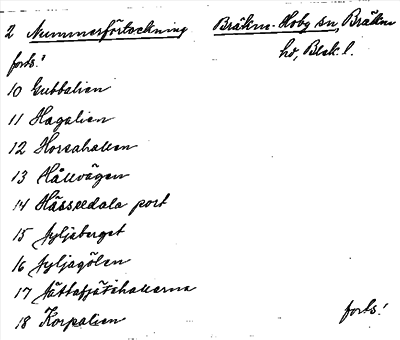 2 Nummerförteckning Bräkne-Hoby sn, Bräkne
forts! hd, Blek. l.
10 Gubbalien
11 Hagalien
12 Horsahallen
13 Hållvägen
14 Hässledala port
15 Jyljaberget
16 Jyljagölen
17 Jättafjätshallarna
18 Korpalien forts!